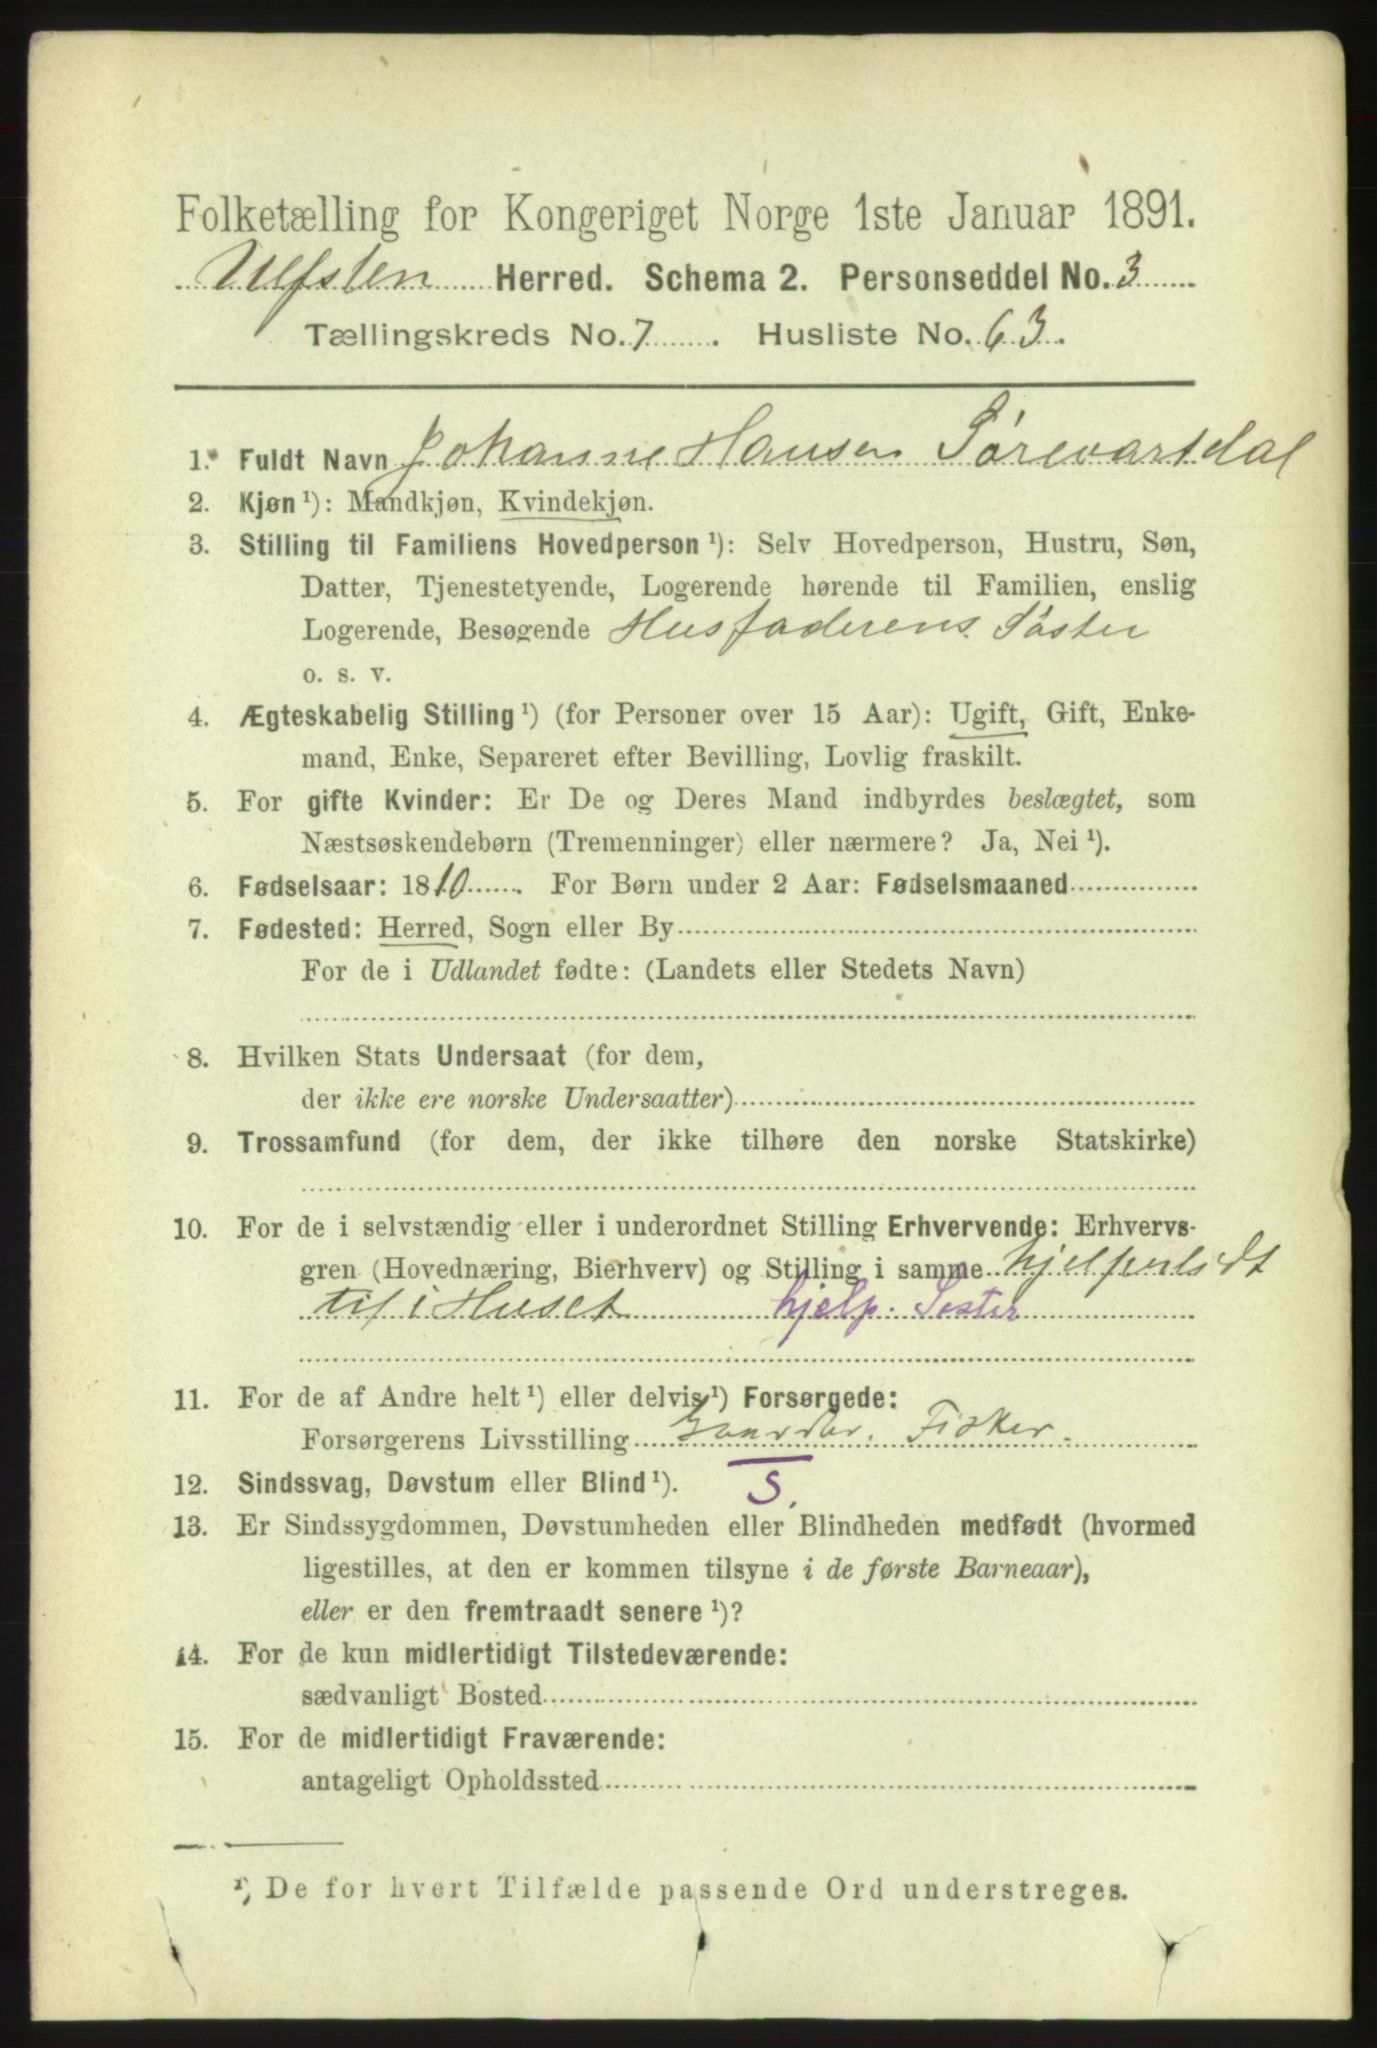 Folketælling for Kongeriget Norge 1ste Januar 1891.
Ulfsten Herred. Schema 2. Personseddel No. 3
Tællingskreds No. 7. Husliste No. 63.
1. Fuldt Navn Johanne Hansen Sörevartdal
2. Kjøn ¹): Mandkjøn, Kvindekjøn.
3. Stilling til Familiens Hovedperson ¹): Selv Hovedperson, Hustru, Søn,
Datter, Tjenestetyende, Logerende hørende til Familien, enslig
Logerende, Besøgende Husfaderens Söster
o. s. v.
4. Ægteskabelig Stilling ¹) (for Personer over 15 Aar): Ugift, Gift, Enke-
mand, Enke, Separeret efter Bevilling, Lovlig fraskilt.
5. For gifte Kvinder: Er De og Deres Mand indbyrdes beslægtet, som
Næstsøskendebørn (Tremenninger) eller nærmere? Ja, Nei ¹).
6. Fødselsaar: 1810. For Børn under 2 Aar: Fødselsmaaned
7. Fødested: Herred, Sogn eller By
For de i Udlandet fødte: (Landets eller Stedets Navn)
8. Hvilken Stats Undersaat (for dem,
der ikke ere norske Undersaatter)
9. Trossamfund (for dem, der ikke tilhøre den norske Statskirke)
10. For de i selvstændig eller i underordnet Stilling Erhvervende: Erhvervs-
gren (Hovednæring, Bierhverv) og Stilling i samme
til i Huset hjelp. Søster
11. For de af Andre helt ¹) eller delvis ¹) Forsørgede:
Forsørgerens Livsstilling Gaardbr. Fisker
12. Sindssvag, Døvstum eller Blind ¹). S.
13. Er Sindssygdommen, Døvstumheden eller Blindheden medfødt (hvormed
ligestilles, at den er kommen tilsyne i de første Barneaar),
eller er den fremtraadt senere ¹)?
14. For de kun midlertidigt Tilstedeværende:
sædvanligt Bosted
15. For de midlertidigt Fraværende:
antageligt Opholdssted
¹) De for hvert Tilfælde passende Ord understreges.